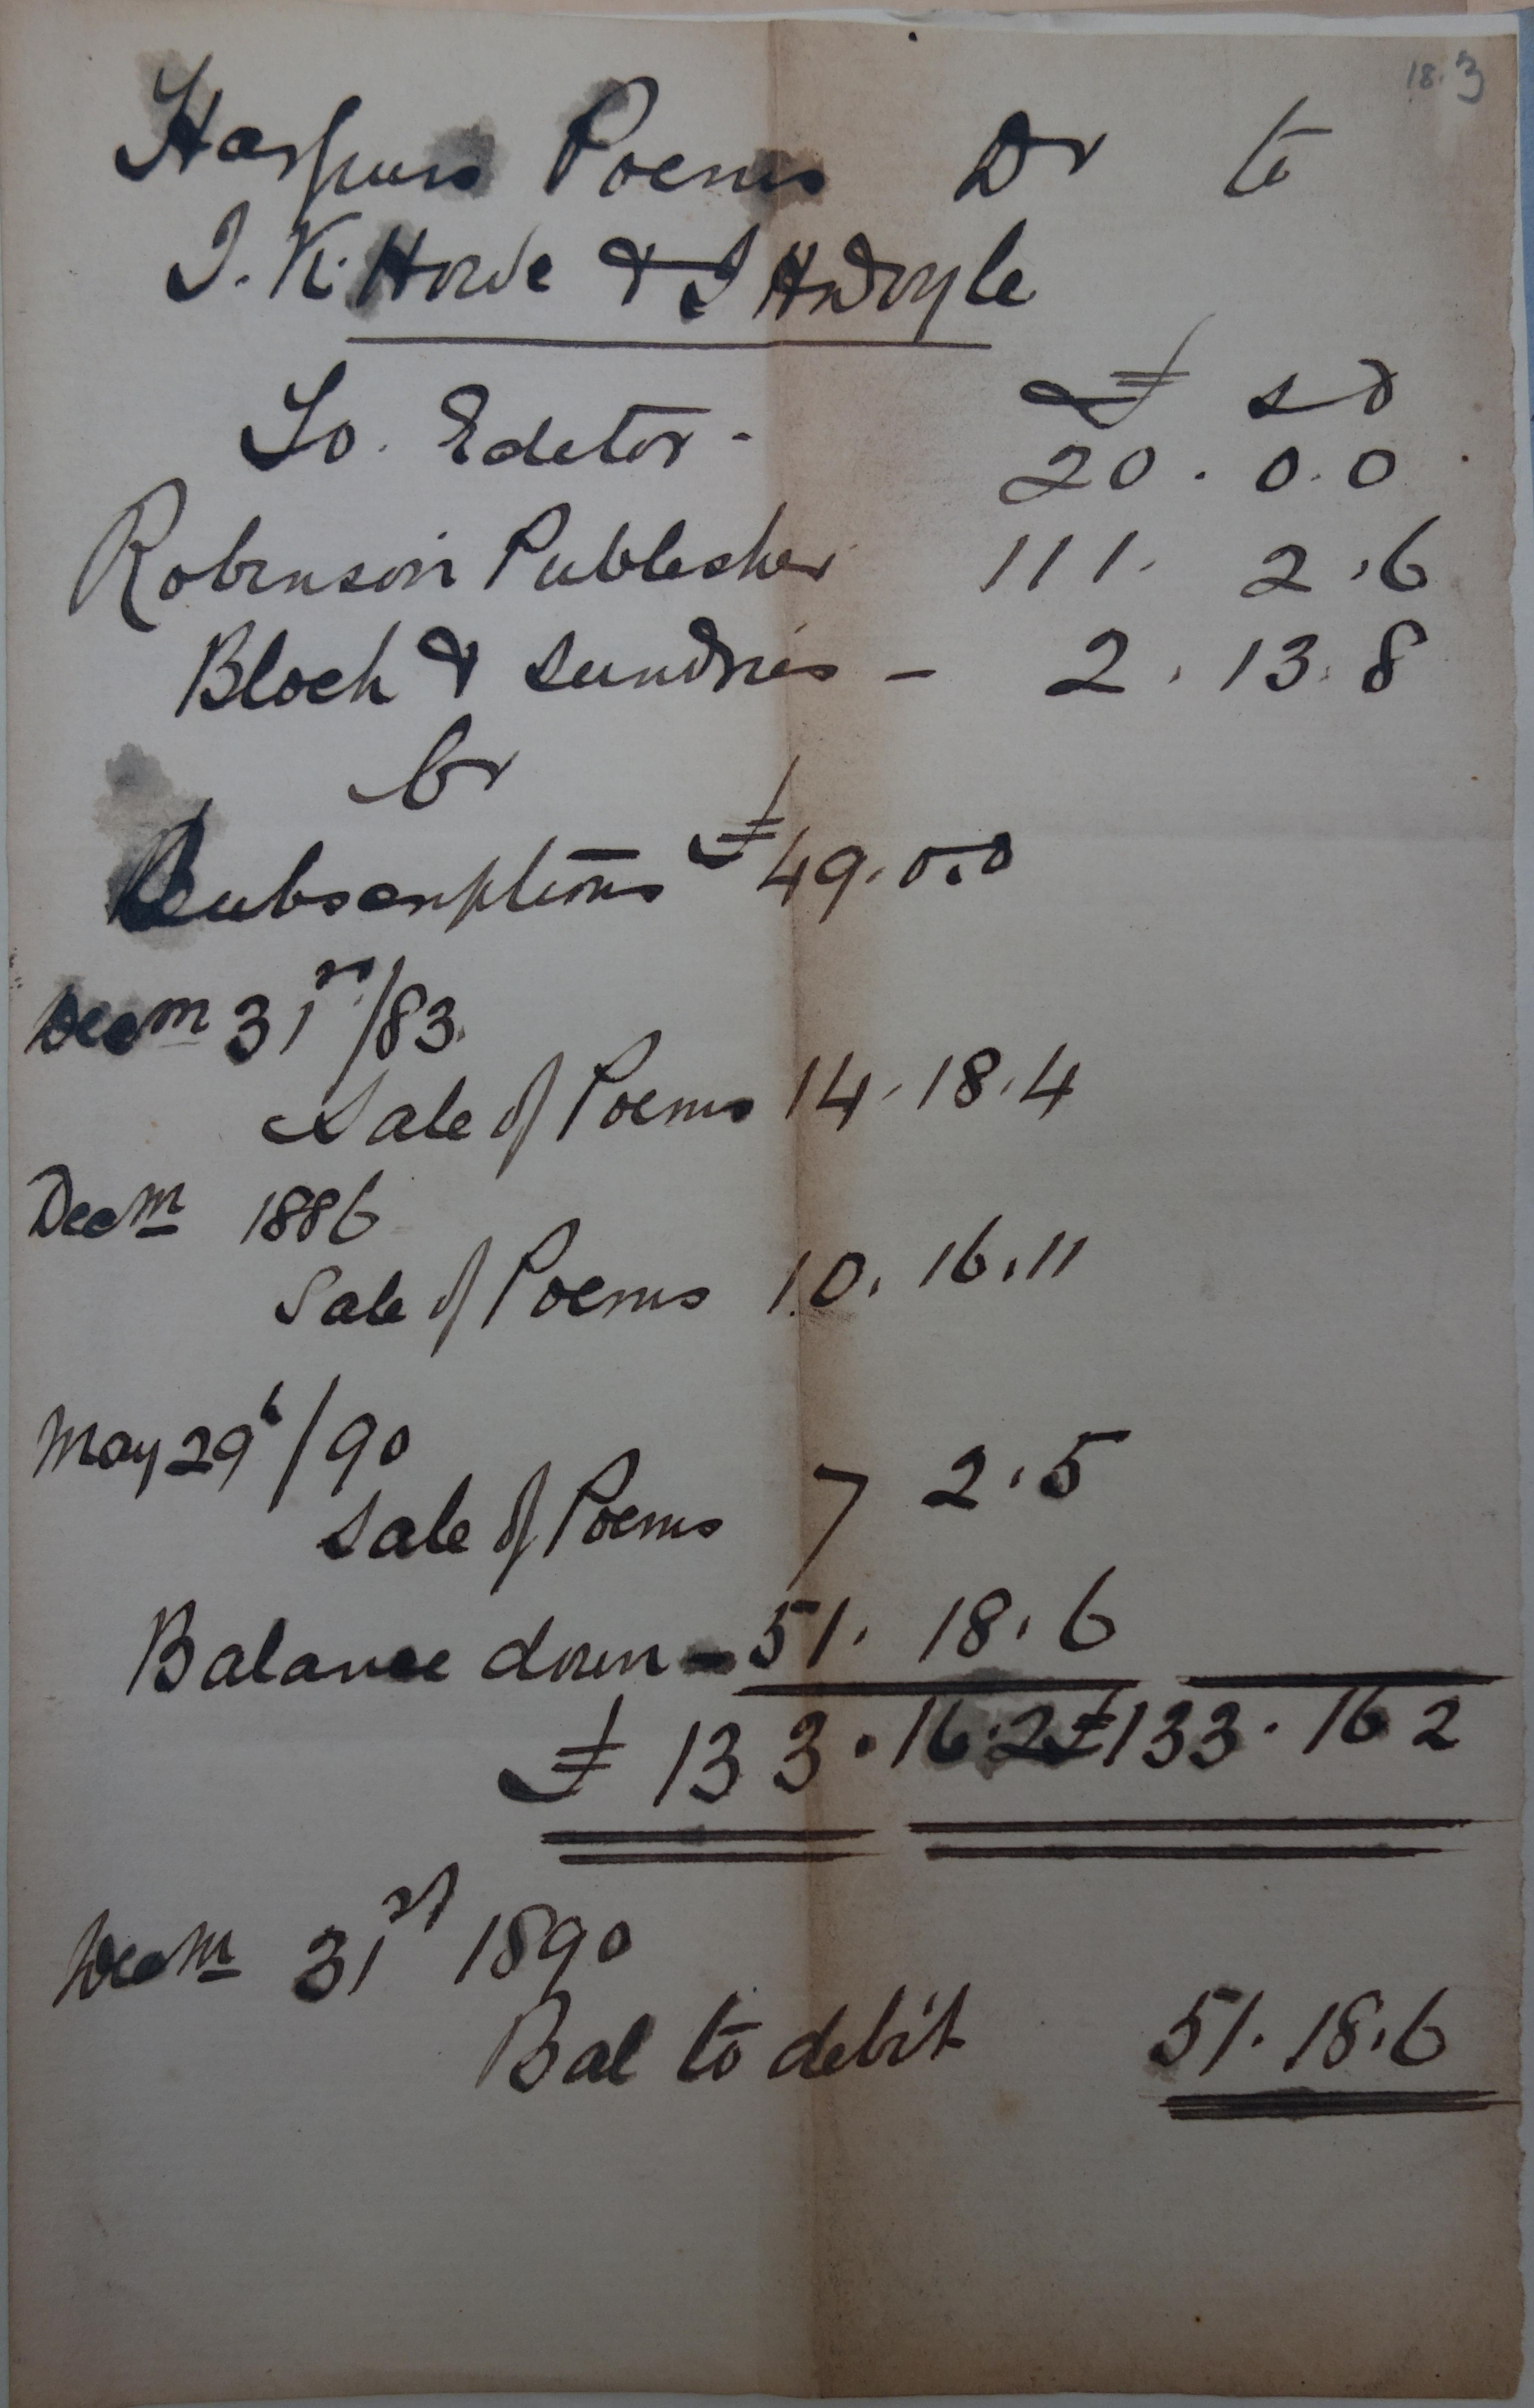 18.3
Harpurs Poems Dr to
J. K. Howe & J Hn Doyle
£ s d
To. Editor - 20 . 0 . 0
Robinson Publisher 111. 2 . 6
Block & sundries - 2 . 13 . 8
Cr
Subscriptions £49.0.0
Decm 31st/83.
Sale of Poems 14 . 18 . 4
Decm 1886
Sale of Poems 10. 16.11
May 29th/90
Sale of Poems 7 2.5
Balance down - 51. 18. 6
£ 133.16.2 £133. 16 2
Decm 31st 1890
Bal to debit 51. 18.6